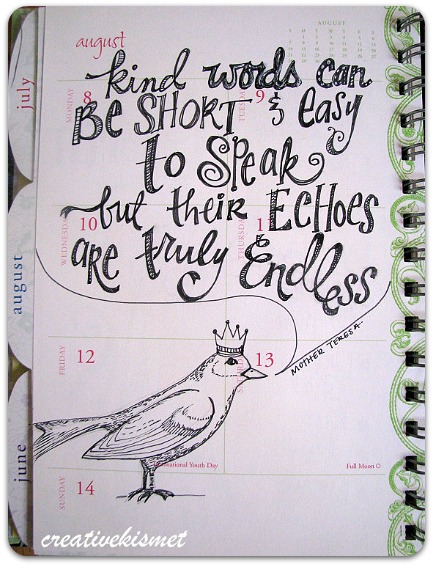 AUGUST
august
july
kind words can
MONDAY 8
TUESDAY 9
BE SHORT & easy
to Speak
but their ECHOES
WEDNESDAY 10
THURSDAY 1
ARE truly Endless
august
MOTHER TERESA.
FRIDAY 12
13
june
national Youth Day
Full Moon
SUNDAY 14
creativekismet